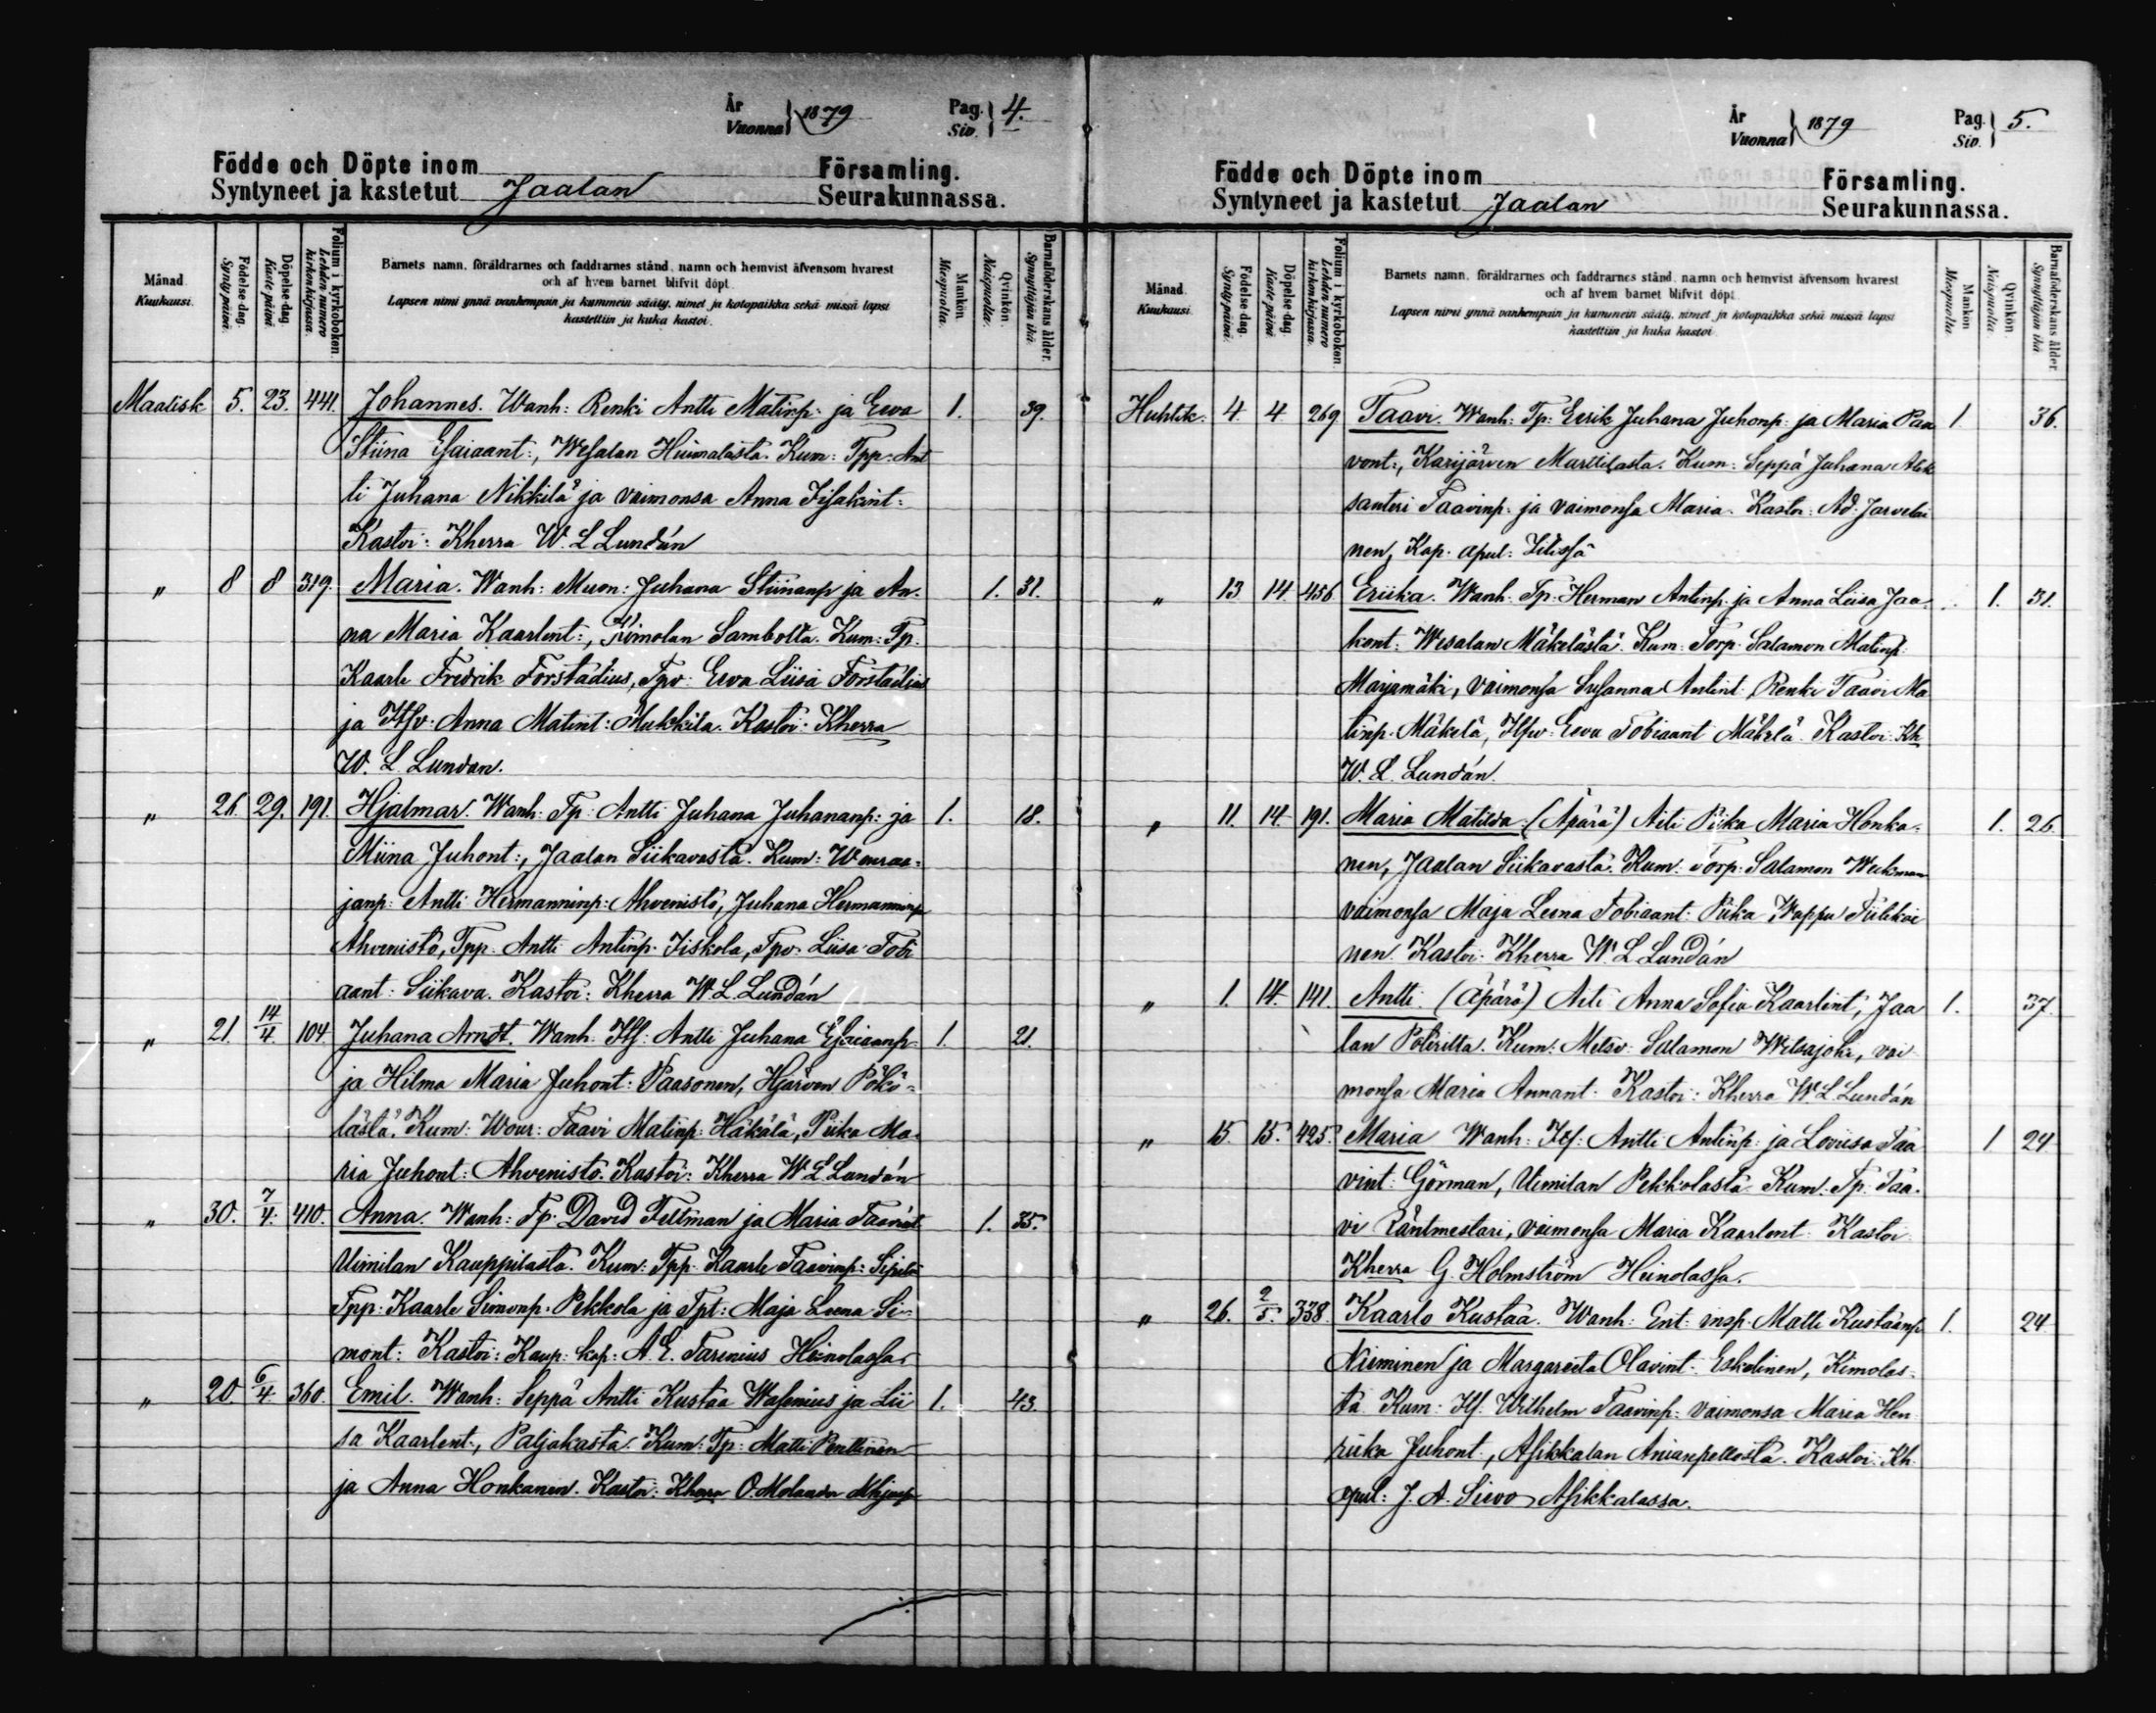 År
Vuonna } 1879
Pag.
Siv. } 4.
Födde och Döpte inom Församling.
Syntyneet ja kastetut Jaalan Seurakunnassa.
Månad.
Kuukausi.
Födelse-dag.
Synty päivä.
Döpelse-dag.
Kaste päivä
Folium i kyrkoboken.
Lehden numero
kirkonkirjassa.
Barnets namn, föräldrarnes och faddrarnes stånd, namn och hemvist äfvensom hvarest
och af hvem barnet blifvit döpt.
Lapsen nimi ynnä vanhempain ja kummein sääty, nimet ja kotopaikka sekä missä lapsi
kastettiin ja kuka kastoi.
Mankön.
Miespuolta.
Qvinkön.
Naispuolta.
Barnaföderskans ålder.
Synnyttäjän ikä.
Maalisk 5. 23. 441. Johannes. Wanh: Renki Antti Matinp: ja Ewa 1. 39.
Stiina Esaiaant:, Wesalan Hiimalasta. Kum: Tpp: Ant
ti Juhana Nikkilä ja vaimonsa Anna Iisakint:
Kastoi: Kherra W. L Lundán
" 8 8 319. Maria. Wanh: Muon: Juhana Stiinanp ja An- 1. 31.
na Maria Kaarlent:, Kimolan Sambolta. Kum: Tp.
Kaarle Fredrik Forstadius, Tpv: Ewa Liisa Forstadius
ja Itsv: Anna Matint: Mukkila. Kastoi: Kherra
W. L. Lundan.
" 26. 29. 191. Hjalmar. Wanh: Tp: Antti Juhana Juhananp: ja 1. 18.
Miina Juhont:, Jaalan Siikavasta. Kum: Wouraa-
janp: Antti Hermanninp: Ahvenisto, Juhana Hermanninp
Ahvenisto, Tpp. Antti Antinp. Iiskola, Tpv: Liisa Tobi
aant: Siikava. Kastoi: Kherra W. L. Lundán
" 21. 14/4. 104. Juhana Arndt. Wanh: Its: Antti Juhana Esaiaanp 1. 21.
ja Hilma Maria Juhont: Paasonen, Hjärven Pökö-
lästä. Kum: Wour: Taavi Matinp: Häkälä, Piika Ma-
ria Juhont: Ahvenisto. Kastoi: Kherra W L Lundán
" 30. 7/4. 410. Anna. Wanh: Tp: David Feltman ja Maria Taavint 1. 35.
Uimilan Kauppilasta. Kum: Tpp. Kaarle Taavinp: Sipilä
Tpp: Kaarle Simonp. Pekkola ja Tpt: Maja Leena Si-
mont: Kastoi: Kaup: kap: A. E. Farenius Heinolassa
" 20. 6/4. 360. Emil. Wanh: Seppä Antti Kustaa Wasenius ja Lii 1. 43.
sa Kaarlent:, Paljakasta. Kum: Tp: Matti Penttinen
ja Anna Honkanen. Kastoi: Kherra O. Molander
År
Vuonna } 1879
Pag.
Siv. } 5.
Födde och Döpte inom Församling.
Syntyneet ja kastetut Jaalan Seurakunnassa.
Månad.
Kuukausi.
Födelse-dag.
Synty päivä.
Döpelse-dag.
Kaste päivä
Folium i kyrkoboken.
Lehden numero
kirkonkirjassa.
Barnets namn, föräldrarnes och faddrarnes stånd, namn och hemvist äfvensom hvarest
och af hvem barnet blifvit döpt.
Lapsen nimi ynnä vanhempain ja kummein sääty, nimet ja kotopaikka sekä missä lapsi
kastettiin ja kuka kastoi.
Mankön
Miespuolta.
Qvinkön.
Naispuolta.
Barnaföderskans ålder.
Synnyttäjän ikä.
Huhtik. 4. 4 269 Taavi. Wanh: Tp: Eerik Juhana Juhonp: ja Maria Paa 1. 36.
vont:, Karijärven Marttilasta. Kum: Seppä Juhana Alek
santeri Taavinp: ja vaimonsa Maria. Kastoi: Ad. Jarvelai
nen, Kap. apul: Iitissä
" 13 14. 456 Eriika. Wanh: Tp: Herman Antinp. ja Anna Liisa Jaa- 1. 31.
kont: Wesalan Mäkelästä. Kum: Torp: Salamon Matinp:
Marjamäki, vaimonsa Susanna Antint: Renki Taavi Ma
tinp. Mäkelä, Itsv: Ewa Tobiaant Mäkelä. Kastoi: Kh
W. L. Lundán.
" 11. 14. 191. Maria Matilda. (Äpärä) Äiti Piika Maria Honka- 1. 26.
nen, Jaalan Siikavasta. Kum: Torp: Salamon Weckman
vaimonsa Maja Leena Tobiaant: Piika Wappu Tiilikai
nen. Kastoi: Kherra W. L Lundán
" 1. 14. 141. Antti. (Äpärä) Äiti Anna Sofia Kaarlint:, Jaa 1. 37.
lan Polirilta. Kum: Metsv: Salamon Wilsajoki, vai
monsa Maria Annant: Kastoi: Kherra W. L Lundán
" 15. 15. 425. Maria Wanh: Its: Antti Antinp: ja Loviisa Taa 1 24
vint: Görman, Uimilan Pekkolasta. Kum: Tp. Taa-
vi Läntmestari, vaimonsa Maria Kaarlent: Kastoi
Kherra G. Holmström Heinolassa.
" 26. 2/5. 338. Kaarlo Kustaa. Wanh: Ent: insp: Matti Kustaanp 1. 24
Nieminen ja Margareeta Olavint: Eskolinen, Kimolas-
ta Kum: Its. Wilhelm Taavinp: vaimonsa Maria Hen
riika Juhont:, Asikkalan Anianpellosta. Kastoi: Kh.
apul: J. A. Siwo Asikkalassa.